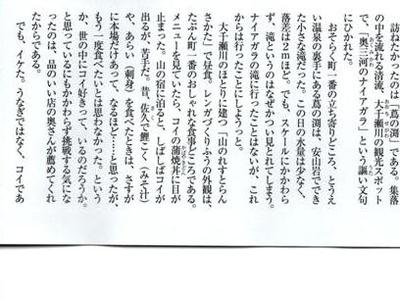 訪ねたかったのは「蔦の淵」である。集落
の中を流れる清流、大千瀬川の観光スポット
で、「奥三河のナイアガラ」という謳い文句
にひかれた。
おそらく町一番の立ち寄りどころ、とうえ
い温泉の裏手にある蔦の淵は、安山岩ででき
た小さな滝だった。この日の水量は少なく、
落差は2mほど。でも、スケールにかかわら
ず、滝というのはなぜかつい見とれてしまう。
ナイアガラの滝に行ったことはないが、これ
からは行ったことにしようっと。
大千瀬川のほとりに建つ「山のれすとらん
さかた」で昼食。レンガづくりふうの外観は、
たぶん町一番のおしゃれな食事どころである。
メニューを見ていたら、コイの蒲焼丼に目が
止まった。山の宿に泊ると、しばしばコイが
出るが、苦手だ。昔、佐久で鯉こく(みそ汁)
や、あらい(刺身)を食べたときは、さすが
に本場だけあって、なるほど……と思ったが、
もう一度食べたいとは思わなかった。という
か、世の中にコイ好きって、いるのだろうか。
と思っているにもかかわらず挑戦する気にな
ったのは、品のいい店の奥さんが薦めてくれ
たからである。
でも、イケた。うなぎではなく、コイであ